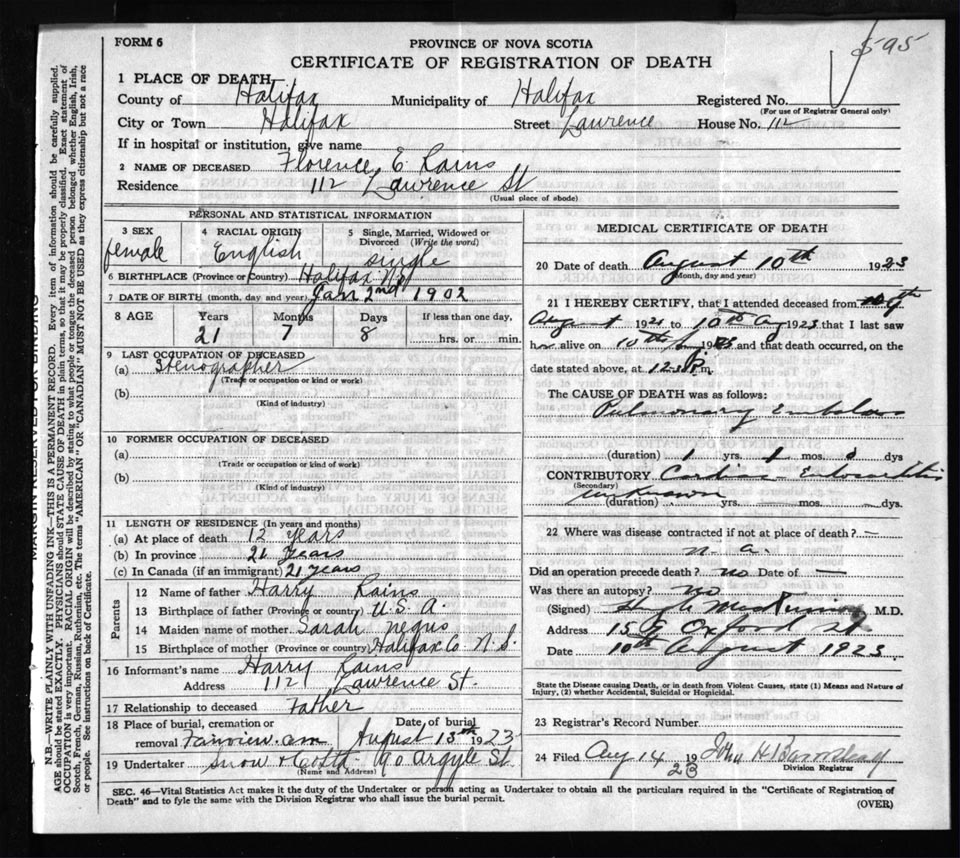 595
FORM 6
PROVINCE OF NOVA SCOTIA
CERTIFICATE OF REGISTRATION OF DEATH
1 PLACE OF DEATH,
County of Halifax Municipality of Halifax Registered No.
(For use of Registrar General only)
City or Town Halifax Street Lawrence House No. 112
If in hospital or institution, give name
2 NAME OF DECEASED Florence E. Rains
Residence 112 Lawrence St
(Usual place of abode)
PERSONAL AND STATISTICAL INFORMATION
3 SEX 4 RACIAL ORIGIN 5 Single, Married, Widowed or Divorced (Write the word)
female English single
6 BIRTHPLACE (Province or Country) Halifax N.S.
7 DATE OF BIRTH (month, day and year) Jan 2nd 1902
8 AGE Years Months Days If less than one day,
21 7 8 hrs. or min.
9 LAST OCCUPATION OF DECEASED
(a) Stenographer
(Trade or occupation or kind or work)
(b)
(Kind of industry)
10 FORMER OCCUPATION OF DECEASED
(a)
(Trade or occupation or kind of work)
(b)
(Kind of industry)
11 LENGTH OF RESIDENCE (In years and months)
(a) At place of death 12 years
(b) In province 21 Years
(c) In Canada (if an immigrant) 21 years
Parents
12 Name of father Harry Rains
13 Birthplace of father (Province or country) U.S.A.
14 Maiden name of mother Sarah Negus
15 Birthplace of mother (Province or country) Halifax Co. N.S.
16 Informant's name Harry Rains
Address 112 Lawrence St.
17 Relationship to deceased Father
18 Place of burial, cremation or Date of burial
removal Fairview. cem August 13th 1923
19 Undertaker Snow & Co Ltd 90 Argyle St.
(Name and Address)
MEDICAL CERTIFICATE OF DEATH
20 Date of death August 10th 1923
(Month, day and year)
21 I HEREBY CERTIFY, that I attended deceased from 9th
August 1921 to 10th Aug 1923 that I last saw
h alive on 10th and that death occurred, on the
date stated above, at m.
The CAUSE OF DEATH was as follows:
Pulmonary Embolus
(duration) 1 yrs. mos. dys
CONTRIBUTORY Cardiac Endocarditis
(Secondary) unknown
(duration) yrs. mos. dys.
22 Where was disease contracted if not at place of death?
n. a.
Did an operation precede death? no Date of
Was there an autopsy? no
(Signed) Hugh M.D.
Address 15 Oxford St
Date 10th August 1923
State the Disease causing Death, or in death from Violent Causes, state (1) Means and Nature of
Injury, (2) whether Accidental, Suicidal or Homicidal.
23 Registrar's Record Number
24 Filed Aug 14 1923 John H
Division Registrar
SEC. 46—Vital Statistics Act makes it the duty of the Undertaker or person acting as Undertaker to obtain all the particulars required in the "Certificate of Registration of
Death" and to fyle the same with the Division Registrar who shall issue the burial permit.
(OVER)
MARGIN RESERVED FOR BINDING
N.B.—WRITE PLAINLY WITH UNFADING INK—THIS IS A PERMANENT RECORD. Every item of information should be carefully supplied.
AGE should be stated EXACTLY. PHYSICIANS should STATE CAUSE OF DEATH in plain terms, so that it may be properly classified. Exact statement of
OCCUPATION is very important. RACIAL ORIGIN will be described by stating to what people or tongue the deceased person belonged whether English, Irish,
Scotch, French, German, Russian, Ruthenian, etc. The terms "AMERICAN" OR "CANADIAN" MUST NOT BE USED as they express citizenship but not a race
or people. See instructions on back of Certificate.